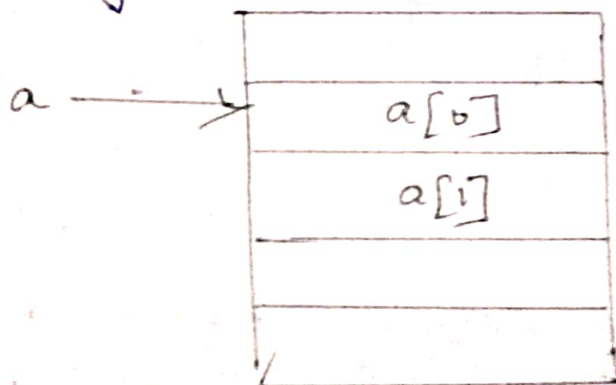 a
a[0]
a[1]